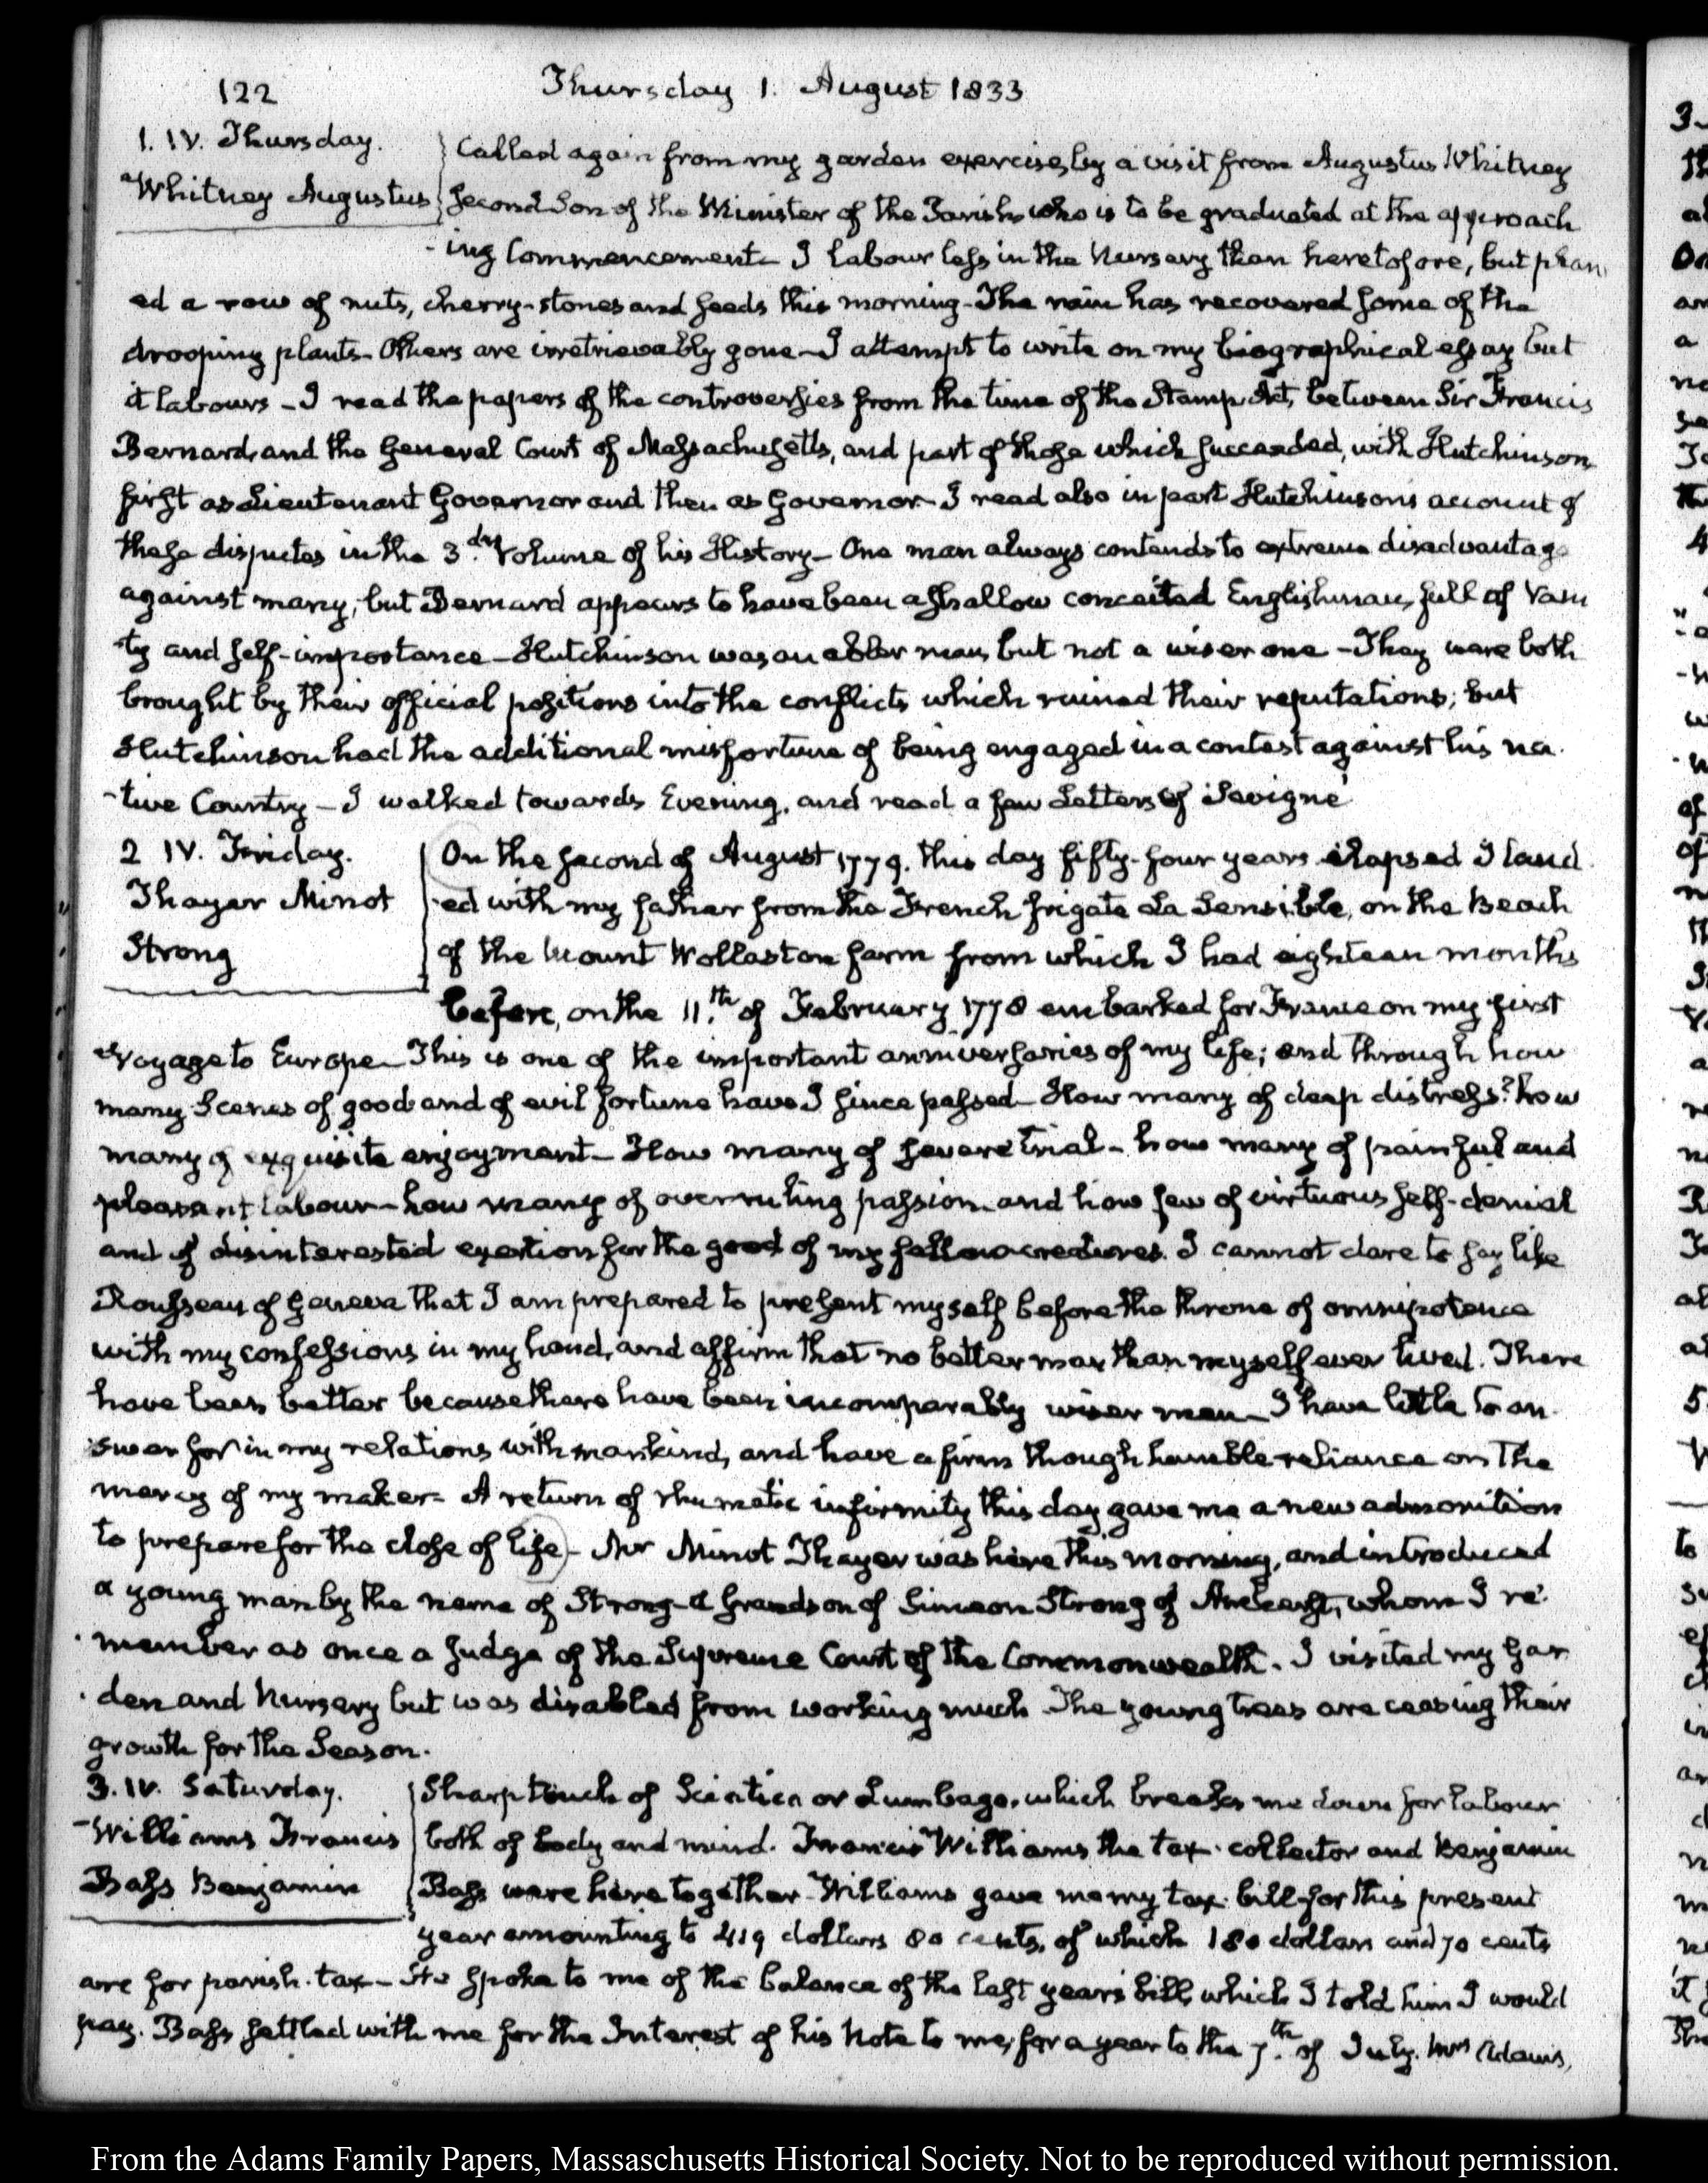 122
Thursday 1. August 1833
1. IV. Thursday.
Whitney Augustus
Called again from my garden exercise, by a visit from Augustus Whitney
second Son of the Minister of the Parish, who is to be graduated at the approach
-ing Commencement- I labour less in the Nursery than heretofore, but plan
ed a row of nuts, cherry-stones and seeds this morning- The rain has recovered some of the
drooping plants- Others are irretrievably gone- I attempt to write on my biographical essay but
it labours - I read the papers of the controversies from the time of the Stamp Act, between Sir Francis
Bernard, and the General Court of Massachusetts, and part of those which succeeded, with Hutchinson
first as Lieutenant Governor and then as Governor- I read also in part Hutchinson's account of
these disputes in the 3.d Volume of his History- One man always contends to extreme disadvantage
against many, but Bernard appears to have been a shallow conceited Englishman, full of Vani
-ty and self-importance- Hutchinson was an abler man, but not a wiser one - They were both
brought by their official positions into the conflicts which ruined their reputations; but
Hutchinson had the additional misfortune of being engaged in a contest against his na-
-tive Country - I walked towards Evening, and read a few Letters of Sevigné
2 IV. Friday.
Thayer Minot
Strong
On the second of August 1779. this day fifty-four years elapsed I land
-ed with my father from the French frigate La Sensible, on the Beach
of the Mount Wollaston farm from which I had eighteen months
before, on the 11.th of February 1778 embarked for France on my first
voyage to Europe- This is one of the important anniversaries of my life; and through how
many Scenes of good and of evil fortune have I since passed- How many of deep distress? how
many of exquisite enjoyment- How many of severe trial- how many of painful and
pleasant labour- how many of overruling passion and how few of virtuous self-denial
and of disinterested exertion for the good of my fellow creatures. I cannot dare to say like
Rousseau of Geneva that I am prepared to present myself before the throne of omnipotence
with my confessions in my hand, and affirm that no better man than myself ever lived. There
have been better because there have been incomparably wiser men- I have little to an-
swer for in my relations with mankind, and have a firm though humble reliance on the
mercy of my maker- A return of rhumatic infirmity this day gave me a new admonition
to prepare for the close of life- Mr Minot Thayer was here this morning, and introduced
a young man by the name of Strong- a Grandson of Simeon Strong of Amherst, whom I re-
-member as once a Judge of the Supreme Court of the Commonwealth. I visited my Gar
-den and Nursery but was disabled from working much. The young trees are ceasing their
growth for the Season.
3. IV. Saturday.
Williams Francis
Bass Benjamin
Sharp touch of Sciatica or Lumbago, which breaks me down for labour
both of body and mind. Francis Williams the tax-collector and Benjamin
Bass were here together- Williams gave me my tax-bill for this present
year amounting to 419 dollars 80 cents, of which 180 dollars and 70 cents
are for parish-tax- He spoke to me of the balance of the last year's bill, which I told him I would
pay. Bass settled with me for the Interest of his Note to me, for a year to the 7.th of July. Mrs Adams,
From the Adams Family Papers, Massachusetts Historical Society. Not to be reproduced without permission.